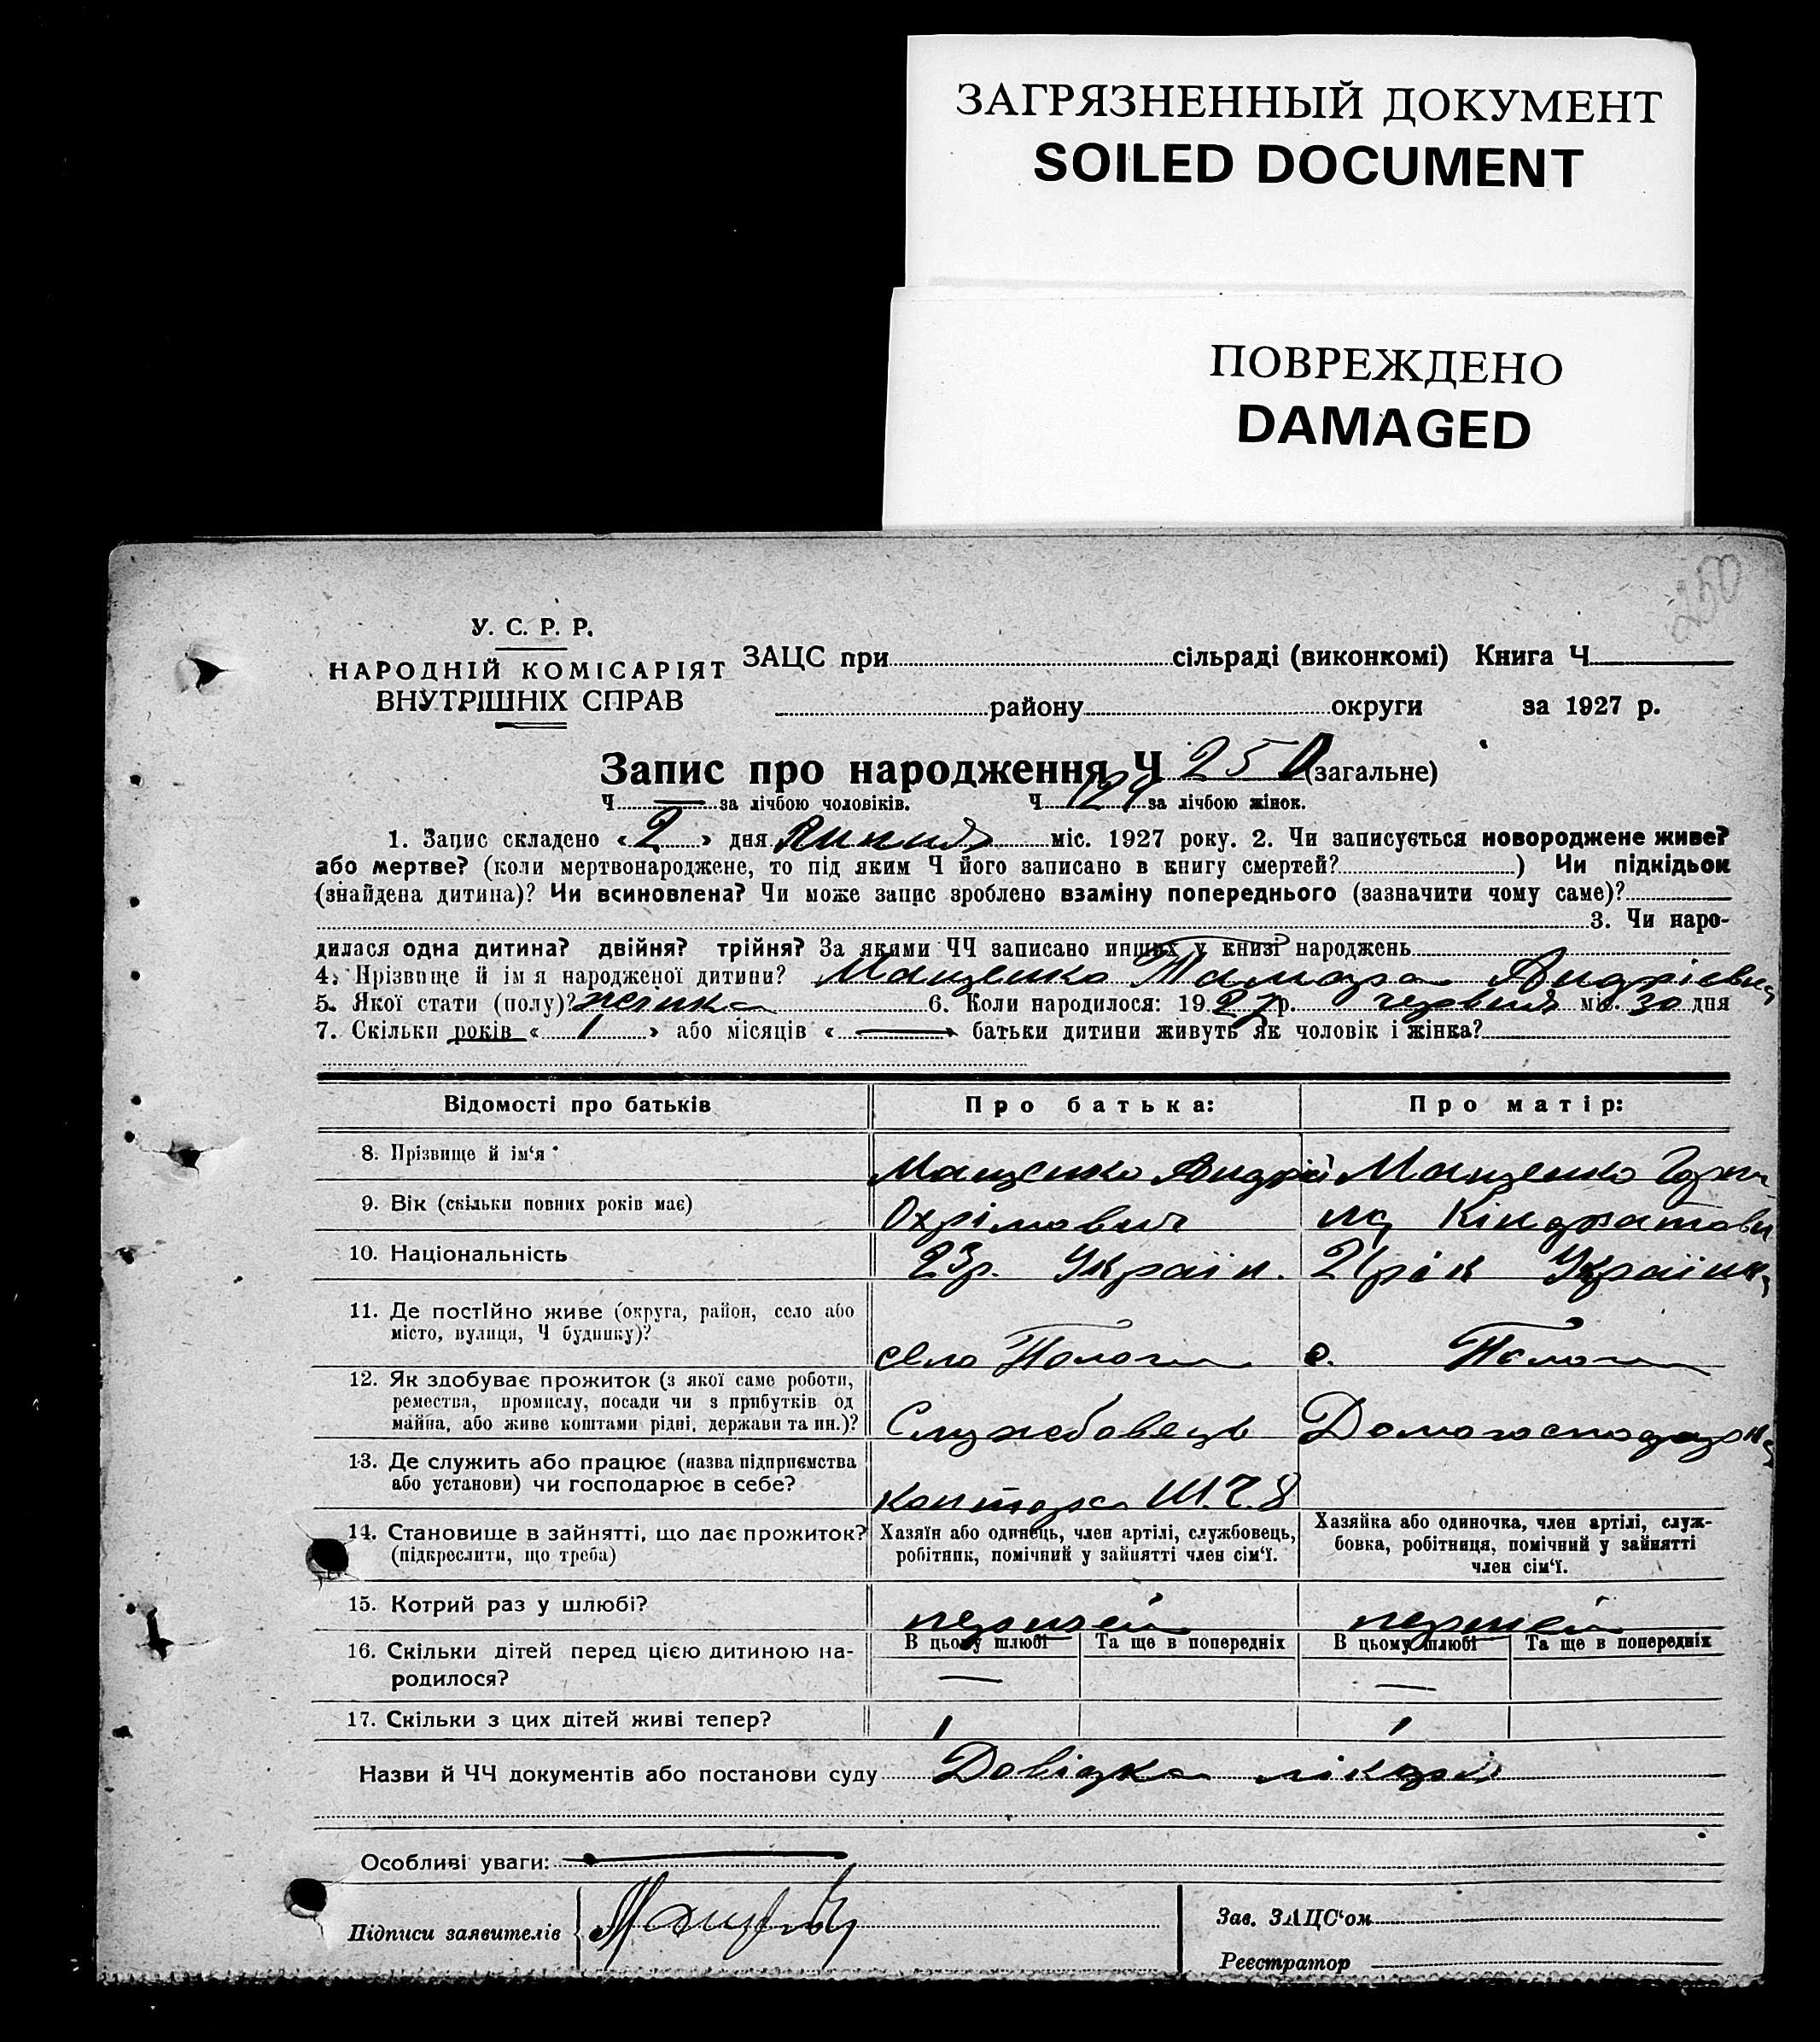 ЗАГРЯЗНЕННЫЙ ДОКУМЕНТ
SOILED DOCUMENT
ПОВРЕЖДЕНО
DAMAGED
250
У. С. Р. Р.
НАРОДНІЙ КОМІСАРІЯТ
ВНУТРІШНІХ СПРАВ
ЗАЦС при сільраді (виконкомі) Книга Ч
району округи за 1927 р.
Запис про народження Ч 250 (загальне)
Ч — за лічбою чоловіків. Ч 124 за лічбою жінок.
1. Запис складено «2» дня липня міс. 1927 року. 2. Чи записується новороджене живе?
або мертве? (коли мертвонароджене, то під яким Ч його записано в книгу смертей? ) Чи підкідьок
(знайдена дитина)? Чи всиновлена? Чи може запис зроблено взаміну попереднього (зазначити чому саме)?
3. Чи наро-
дилася одна дитина? двійня? трійня? За якими ЧЧ записано инших у книзі народжень
4. Прізвище й імя народженої дитини? Мащенко Тамара Андріевна
5. Якої стати (полу)? жіника 6. Коли народилося: 1927 р. червня міс. 30 дня
7. Скільки років « 1 » або місяців « — » батьки дитини живуть як чоловік і жінка?
Відомості про батьків Про батька: Про матір:
8. Прізвище й ім'я Мащенко Андрій Мащенко
9. Вік (скільки повних років має) Охрімович Кіндратовн
10. Національність 23 р. Україн. 21 рік Українка
11. Де постійно живе (округа, район, село або
місто, вулиця, Ч будинку)? село Пологи с. Пологи
12. Як здобуває прожиток (з якої саме роботи,
ремества, промислу, посади чи з прибутків од
майна, або живе коштами рідні, держави та ин.)? Службовець Домогосподарка
13. Де служить або працює (назва підприємства
або установи) чи господарює в себе? контора Ш.Ч.8
14. Становище в зайнятті, що дає прожиток?
(підкреслити, що треба)
Хазяїн або одинець, член артілі, службовець,
робітник, помічний у зайнятті член сім'ї.
Хазяйка або одиночка, член артілі, служ-
бовка, робітниця, помічний у зайнятті
член сім'ї.
15. Котрий раз у шлюбі? першей першей
16. Скільки дітей перед цією дитиною на-
родилося?
В цьому шлюбі Та ще в попередніх В цьому шлюбі Та ще в попередніх
— —
17. Скільки з цих дітей живі тепер? 1 1
Назви й ЧЧ документів або постанови суду Довідка лікаря
Особливі уваги: —
Підписи заявителів
Зав. ЗАЦС'ом
Реєстратор